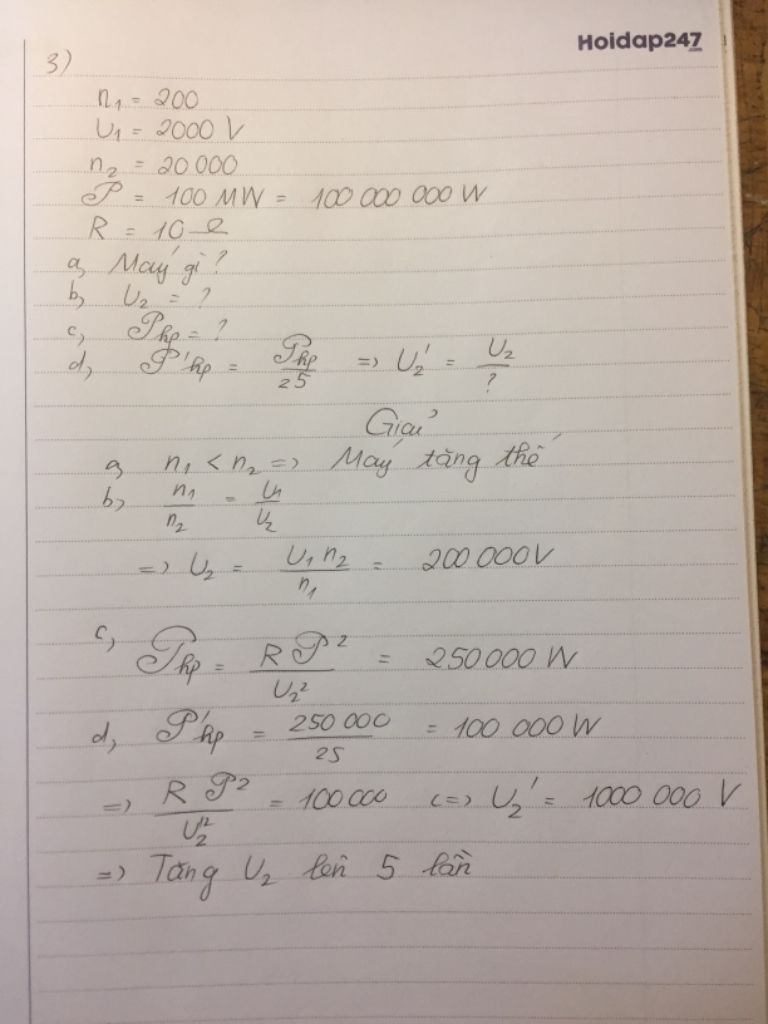 Hoidap247
3)
n₁ = 200
U₁ = 2000 V
n₂ = 20 000
P = 100 MW = 100 000 000 W
R = 10 Ω
a, Máy gì ?
b, U₂ = ?
c, Php = ?
d, P'hp = Php/25 => U₂' = U₂/?
Giải
a, n₁ < n₂ => Máy tăng thế
b, n₁/n₂ = U₁/U₂
=> U₂ = U₁n₂/n₁ = 200 000V
c, Php = RP²/U₂² = 250000 W
d, P'hp = 250 000/25 = 100 000 W
=> RP²/U₂'² = 100000 <=> U₂' = 1000 000 V
=> Tăng U₂ lên 5 lần